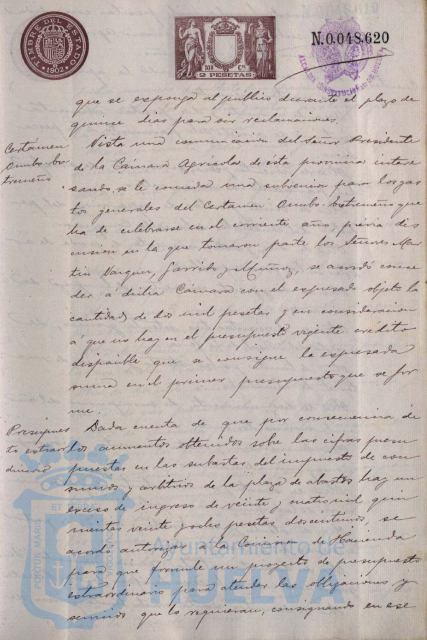 TIMBRE DEL ESTADO
1902
2 PESETAS
N.0.048.620
que se exponga al público durante el plazo de
quince dias para oir reclamaciones.
Certamen
Vista una comunicacion del Señor Presidente
de la Cámara Agricola de esta provincia intere
sando se le conceda una subvencion para los gas
tos generales del Certamen que
ha de celebrarse en el corriente año, prévia dis
cusion en la que tomaron parte los Señores Mar
tin Vazquez, Garrido y Muñoz, se acordó conce
der á dicha Cámara con el expresado objeto la
cantidad de dos mil pesetas y en consideracion
á que no hay en el presupuesto vigente crédito
disponible que se consigne la expresada
suma en el primer presupuesto que se for
me.
Presupues
to extraor
dinario
Dada cuenta de que por consecuencia de
los aumentos obtenidos sobre las cifras presu
puestas en las subastas del impuesto de con
sumos y arbitrios de la plaza de abastos hay un
exceso de ingreso de veinte y cuatro mil quin
ientas veinte y ocho pesetas dos centimos, se
acordó autorizar á la Comision de Hacienda
para que formule un proyecto de presupuesto
extraordinario para atender las obligaciones y
servicios que lo requieran, consignando en ese
Ayuntamiento de
HUELVA